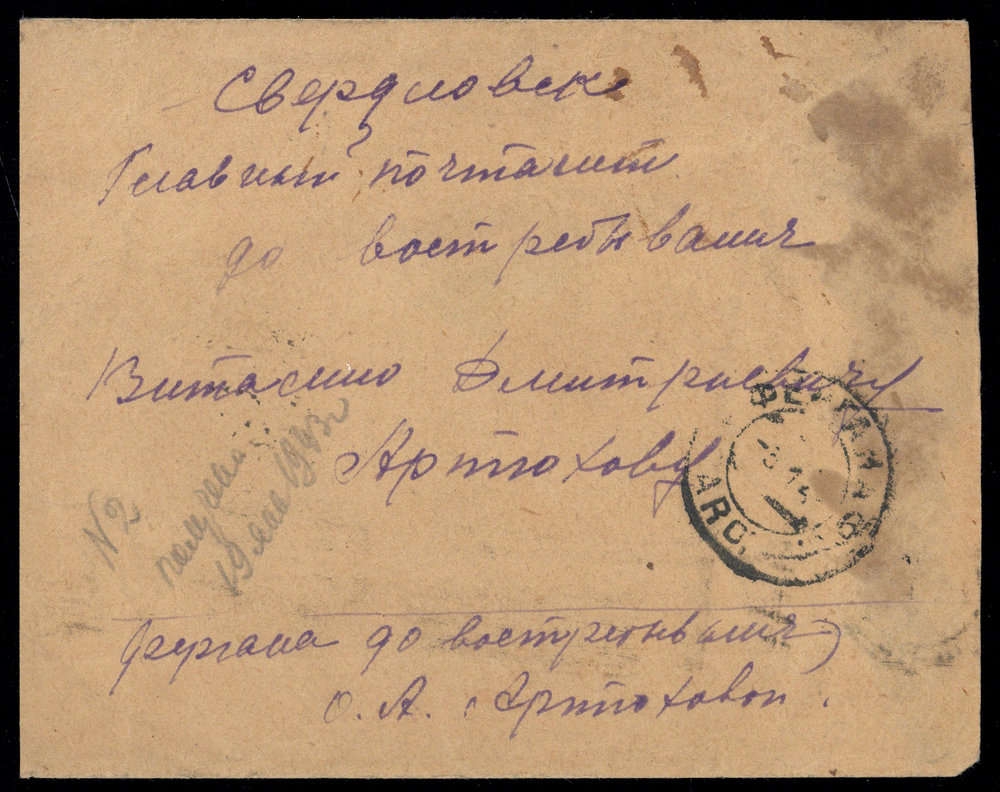 Свердловск
Главный почтамт
до востребывания
Виталию Дмитриевичу
Артюхову
ФЕРГАНА
N2
получено
19 мая 1943г
Фергана до востребывания
О. А. Артюховой.